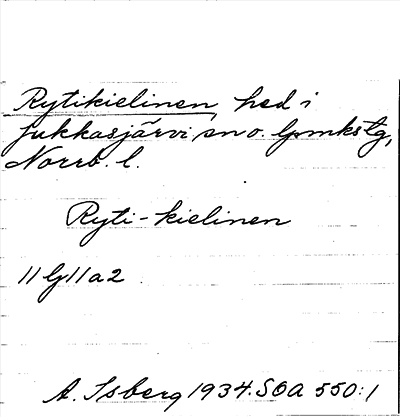 Rytikielinen, hed i
Jukkasjärvi sn o. lpmkstg,
Norrb. l.
Ryti-kielinen
11 G 11 a 2
A. Isberg 1934. SOA 550:1